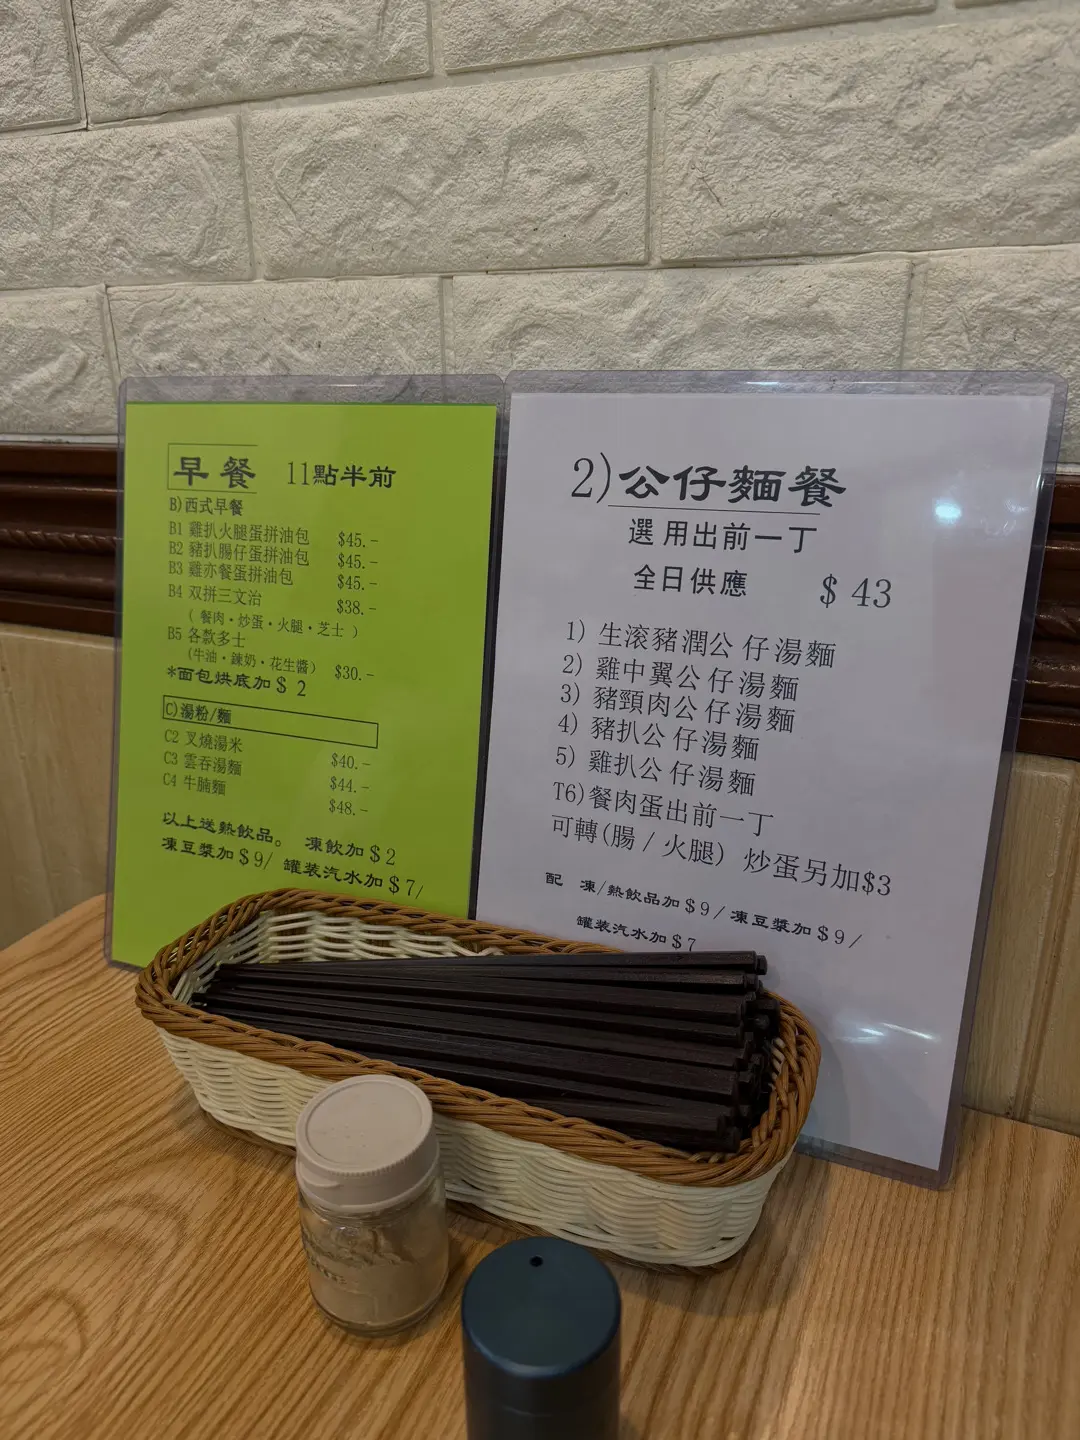 早餐 11點半前
B)西式早餐
B1 雞扒火腿蛋拼油包 $45.-
B2 豬扒腸仔蛋拼油包 $45.-
B3 雞亦餐蛋拼油包 $45.-
B4 双拼三文治 $38.-
( 餐肉・炒蛋・火腿・芝士 )
B5 各款多士
(牛油・鍊奶・花生醬) $30.-
*面包烘底加$ 2
C)湯粉/麵
C2 叉燒湯米 $40.-
C3 雲吞湯麵 $44.-
C4 牛腩麵 $48.-
以上送熱飲品。 凍飲加$2
凍豆漿加$9/ 罐装汽水加$7/
2)公仔麵餐
選用出前一丁
全日供應 $ 43
1) 生滚豬潤公仔湯麵
2) 雞中翼公仔湯麵
3) 豬頸肉公仔湯麵
4) 豬扒公仔湯麵
5) 雞扒公仔湯麵
T6)餐肉蛋出前一丁
可轉(腸 / 火腿) 炒蛋另加$3
配 凍/熱飲品加$9/凍豆漿加$9/
罐装汽水加$7